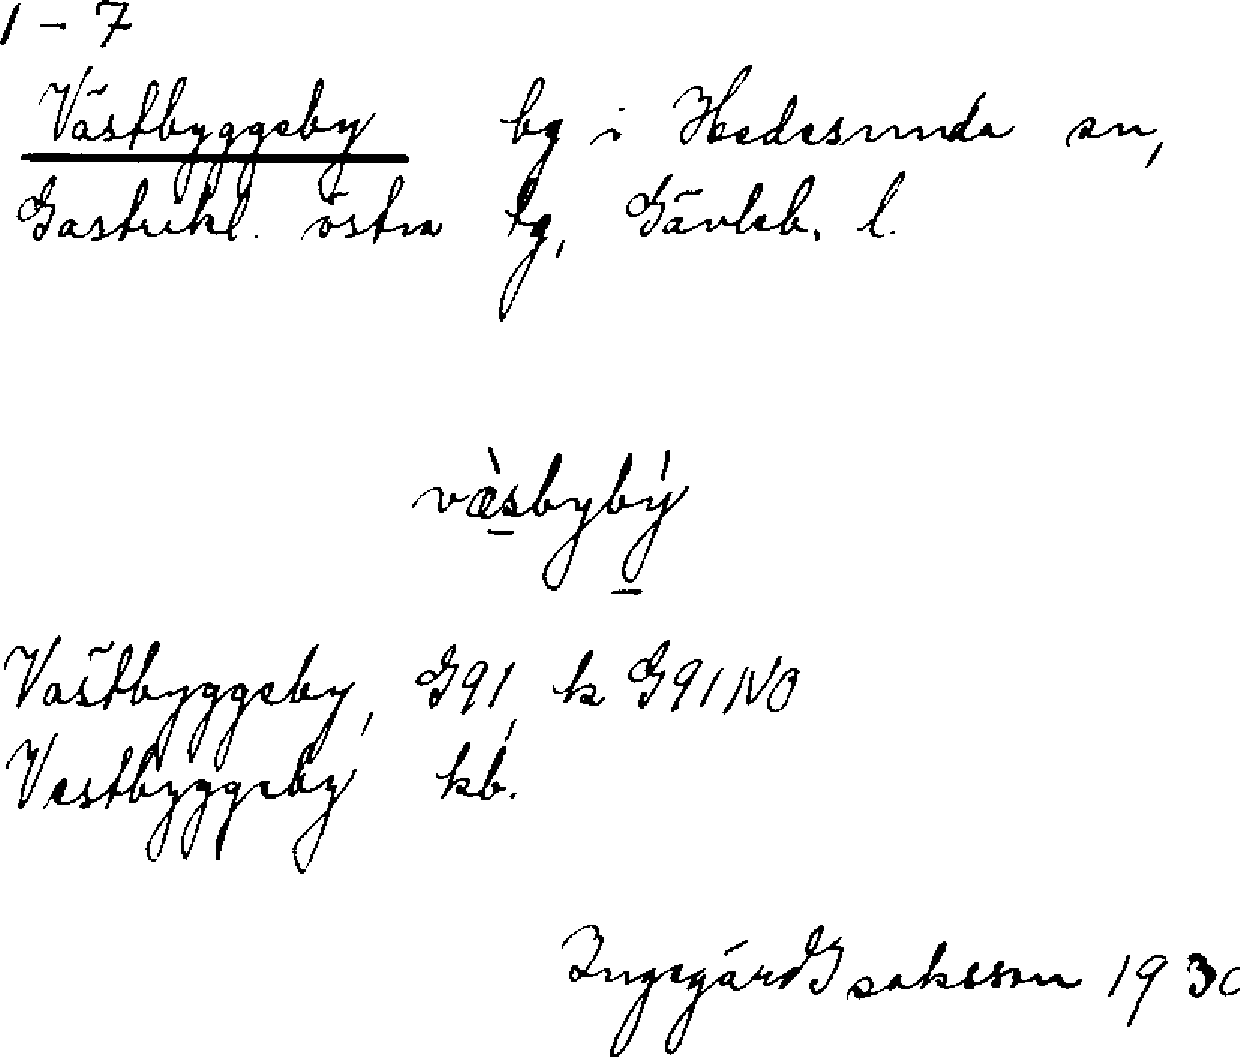 1 - 7
Västbyggeby by i Hedesunda sn,
Gästrikl. östra tg, Gävleb. l.
væ̀sbybý
Västbyggeby, G91, k G91NO
Vestbyggeby kb.
Ingegärd Isaksson 1930